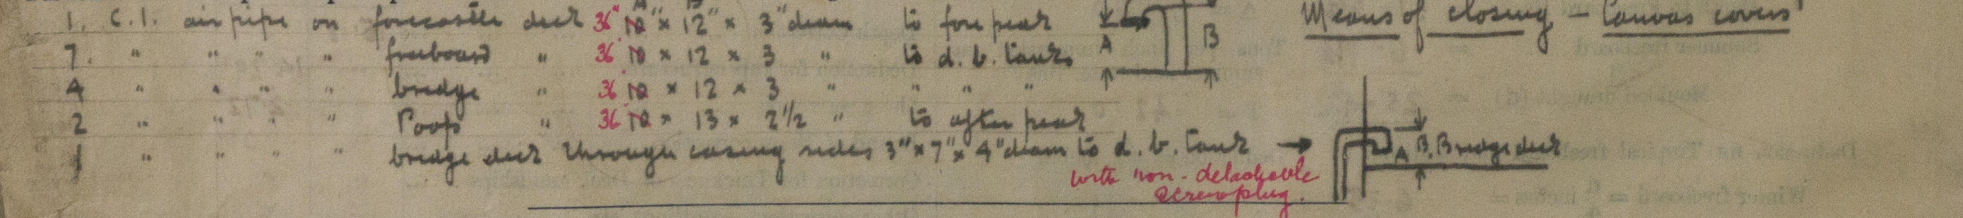 1. C.I. air pipe on forecastle deck 36" 12" × 12" × 3" diam to fore peak
7. " " " " freeboard " 36" 10 × 12 × 3 " to d.b. tanks
4 " " " " bridge " 36" 12 × 12 × 3 " " " "
2 " " " " Poop " 36" 12 × 13 × 2 1/2 " to after peak
1 " " " " bridge deck through casing sides 3" × 7" × 4" diam to d.b. tank →
with non-detachable
screw plug.
A B
Means of closing - Canvas covers
A B. Bridge deck